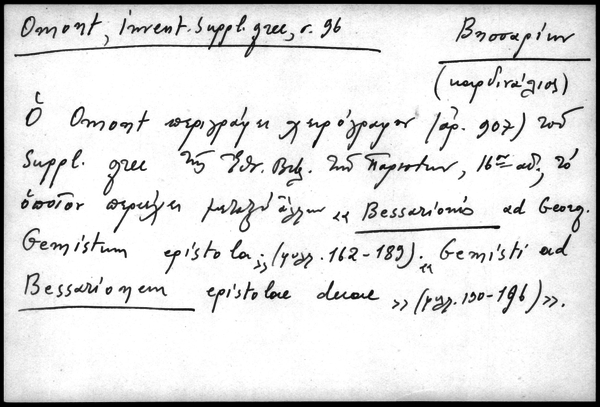 Omont, Invent. Suppl. grec, σ. 96
Βησσαρίων
(καρδινάλιος)
Ὁ Omont περιγράφει χειρόγραφον (ἀρ. 907) τοῦ
Suppl. grec τῆς Ἐθν. Βιβ. τῶν Παρισίων, 16ου αἰ., τὸ
ὁποῖον περιέχει μεταξὺ ἄλλων «Bessarionis ad Georg.
Gemistum epistola» (φυλλ. 162-189). «Gemisti ad
Bessarionem epistolae duae» (φυλλ. 190-196)».